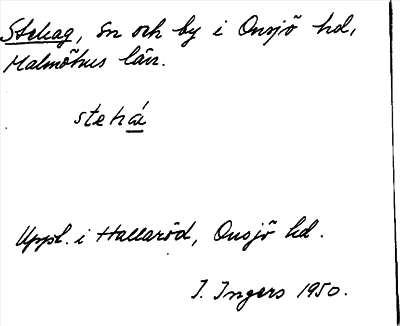 Stehag, sn och by i Onsjö hd,
Malmöhus län.
stehá
Uppt. i Hallaröd, Onsjö hd.
I. Ingers 1950.